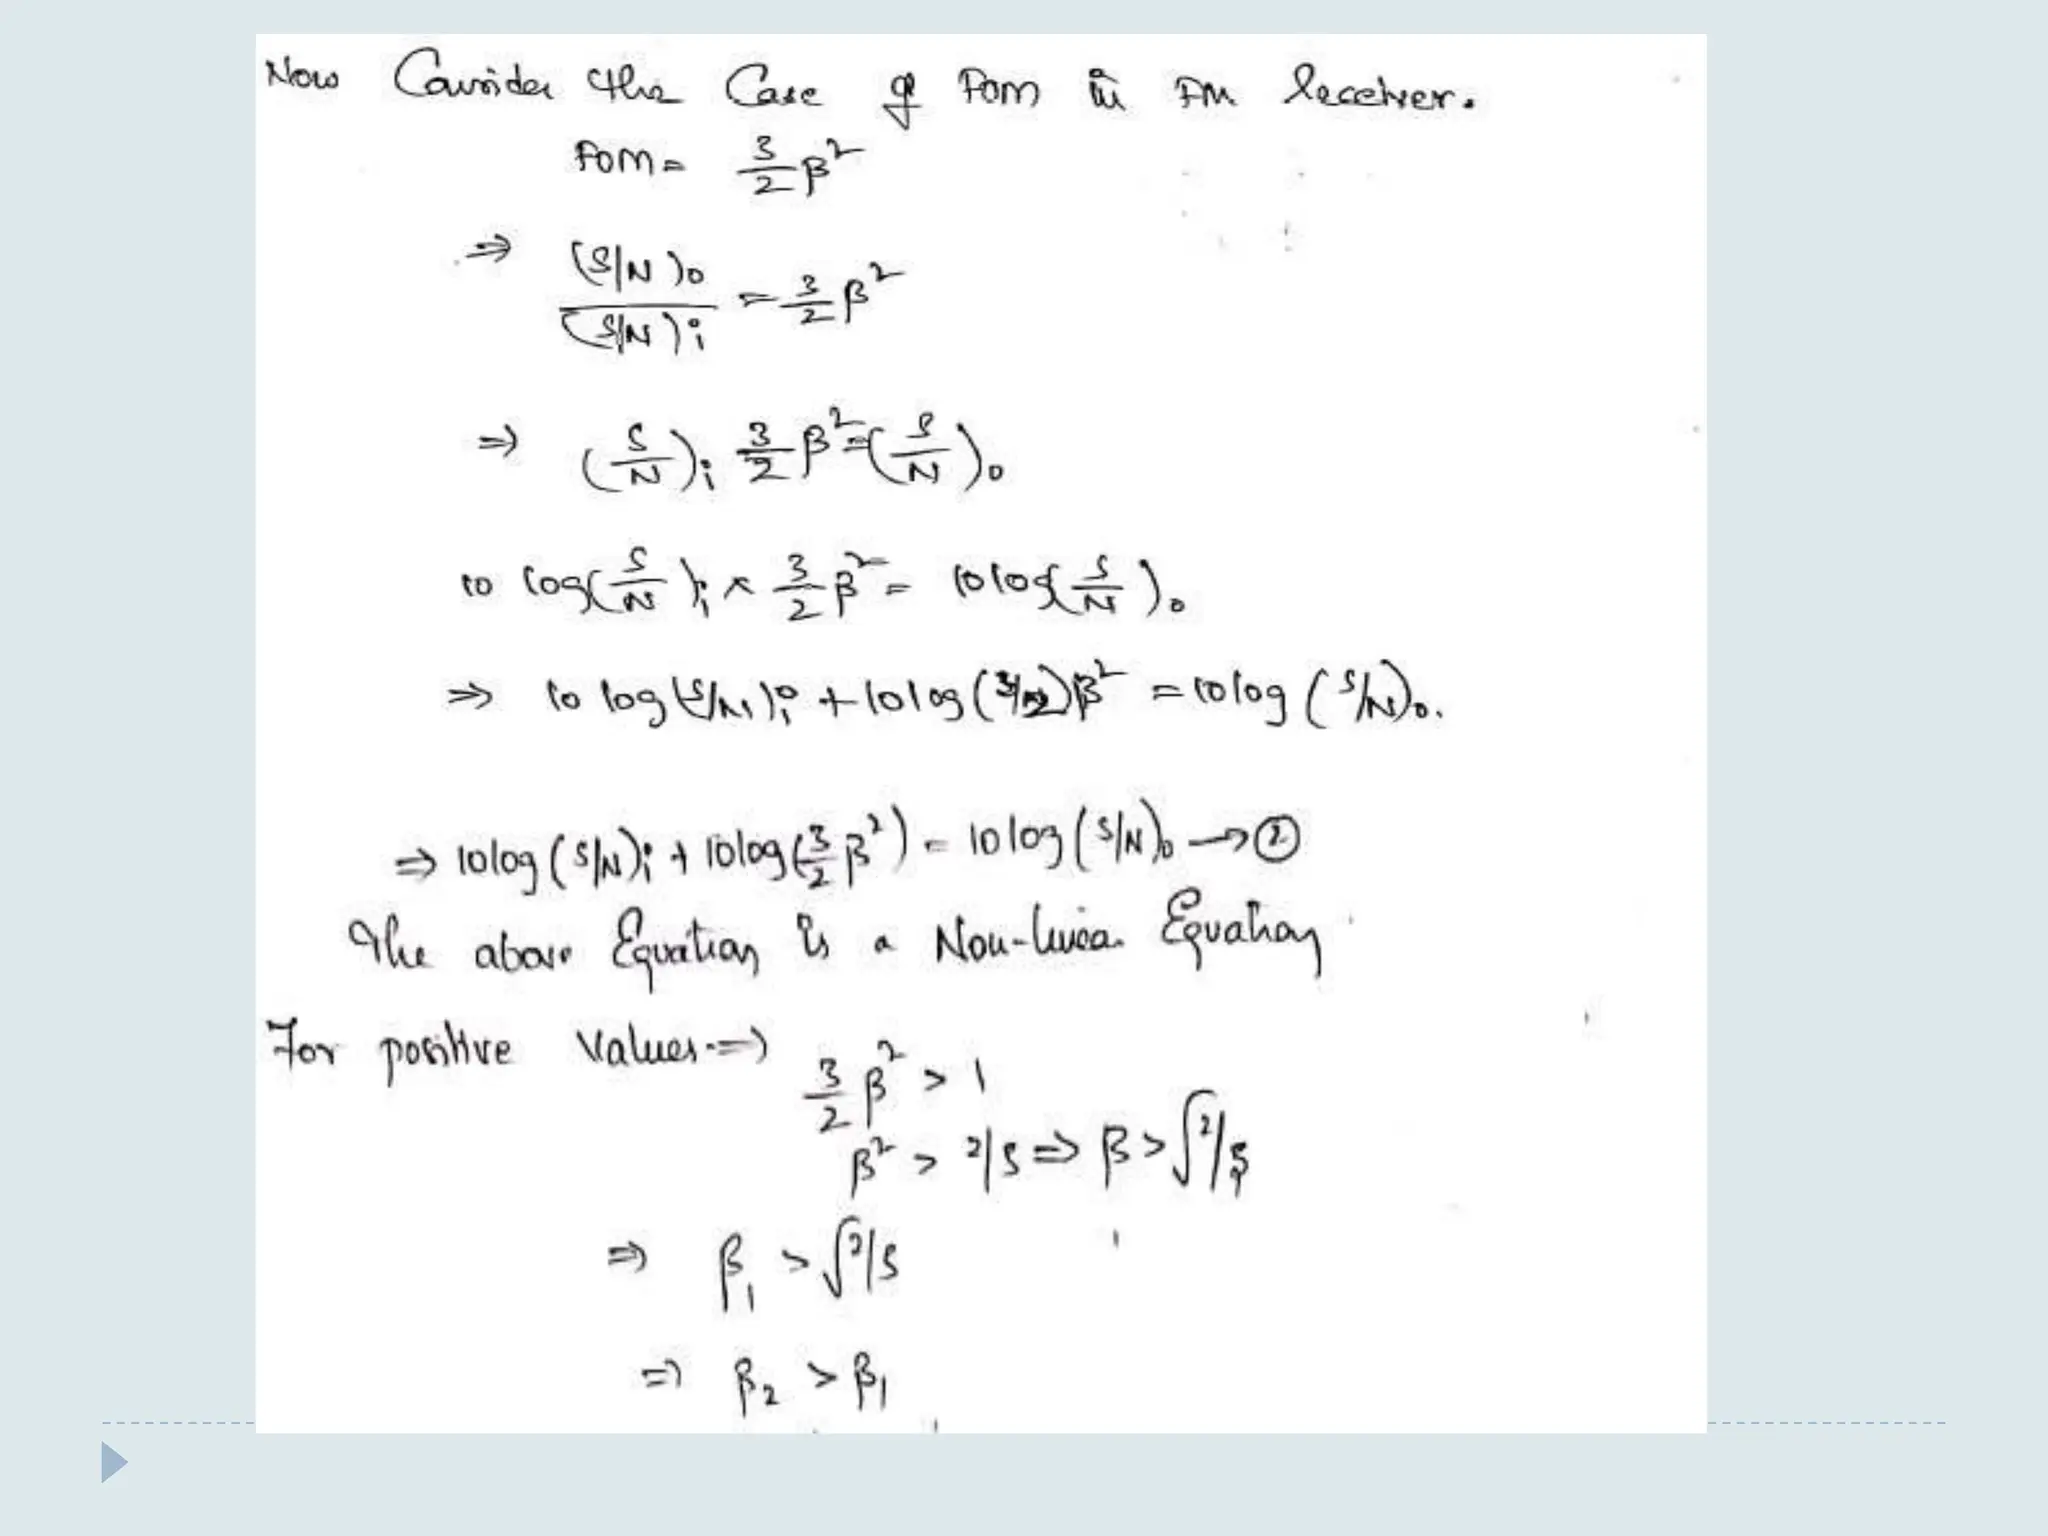 Now Consider the Case of FOM in FM Receiver.
FOM = 3/2 β²
⇒ (S/N)o / (S/N)i = 3/2 β²
⇒ (S/N)i 3/2 β² = (S/N)o
10 log(S/N)i × 3/2 β² = 10 log(S/N)o
⇒ 10 log(S/N)i + 10log(3/2)β² = 10log(S/N)o.
⇒ 10log(S/N)i + 10log(3/2 β²) = 10log(S/N)o → ②
The above Equation is a Non-linear Equation
For positive Values ⇒ 3/2 β² > 1
β² > 2/3 ⇒ β > √2/3
⇒ β₁ > √2/3
⇒ β₂ > β₁